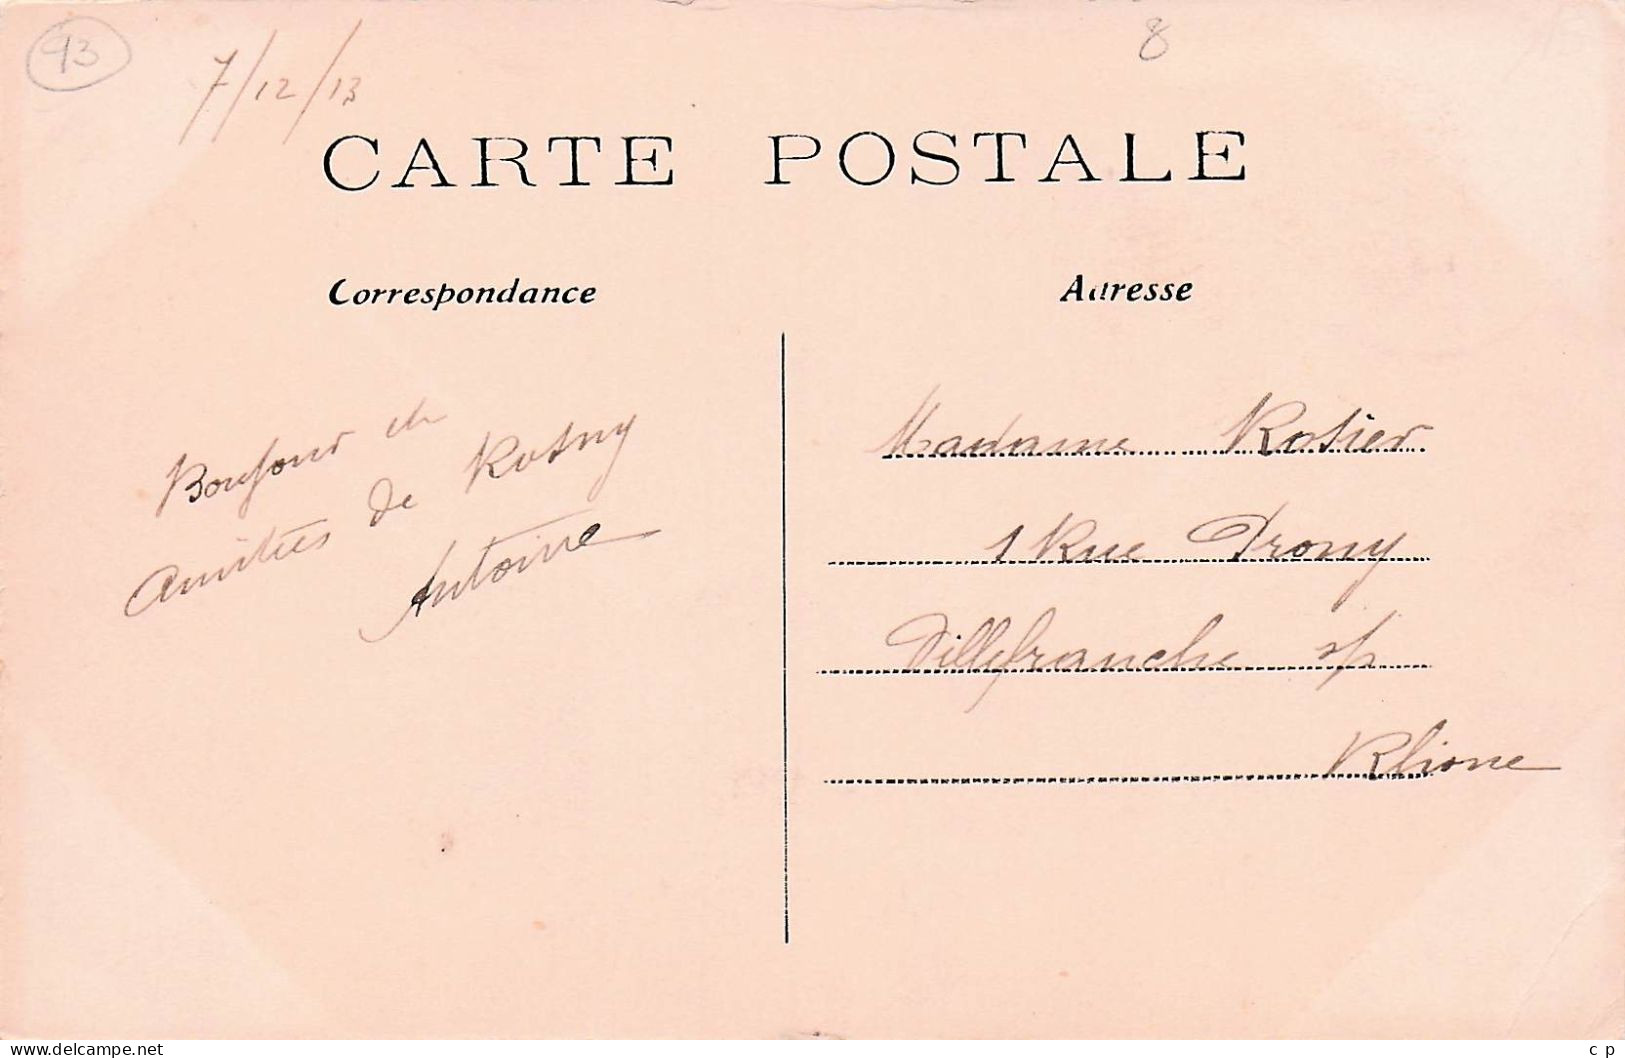 93
7/12/13
8
CARTE POSTALE
Correspondance
Adresse
Bonjour et
amitiés de Rosny
Antoine
Madame Rosier
1 Rue Prony
Villefranche s/s
Rhone
www.delcampe.net
c p